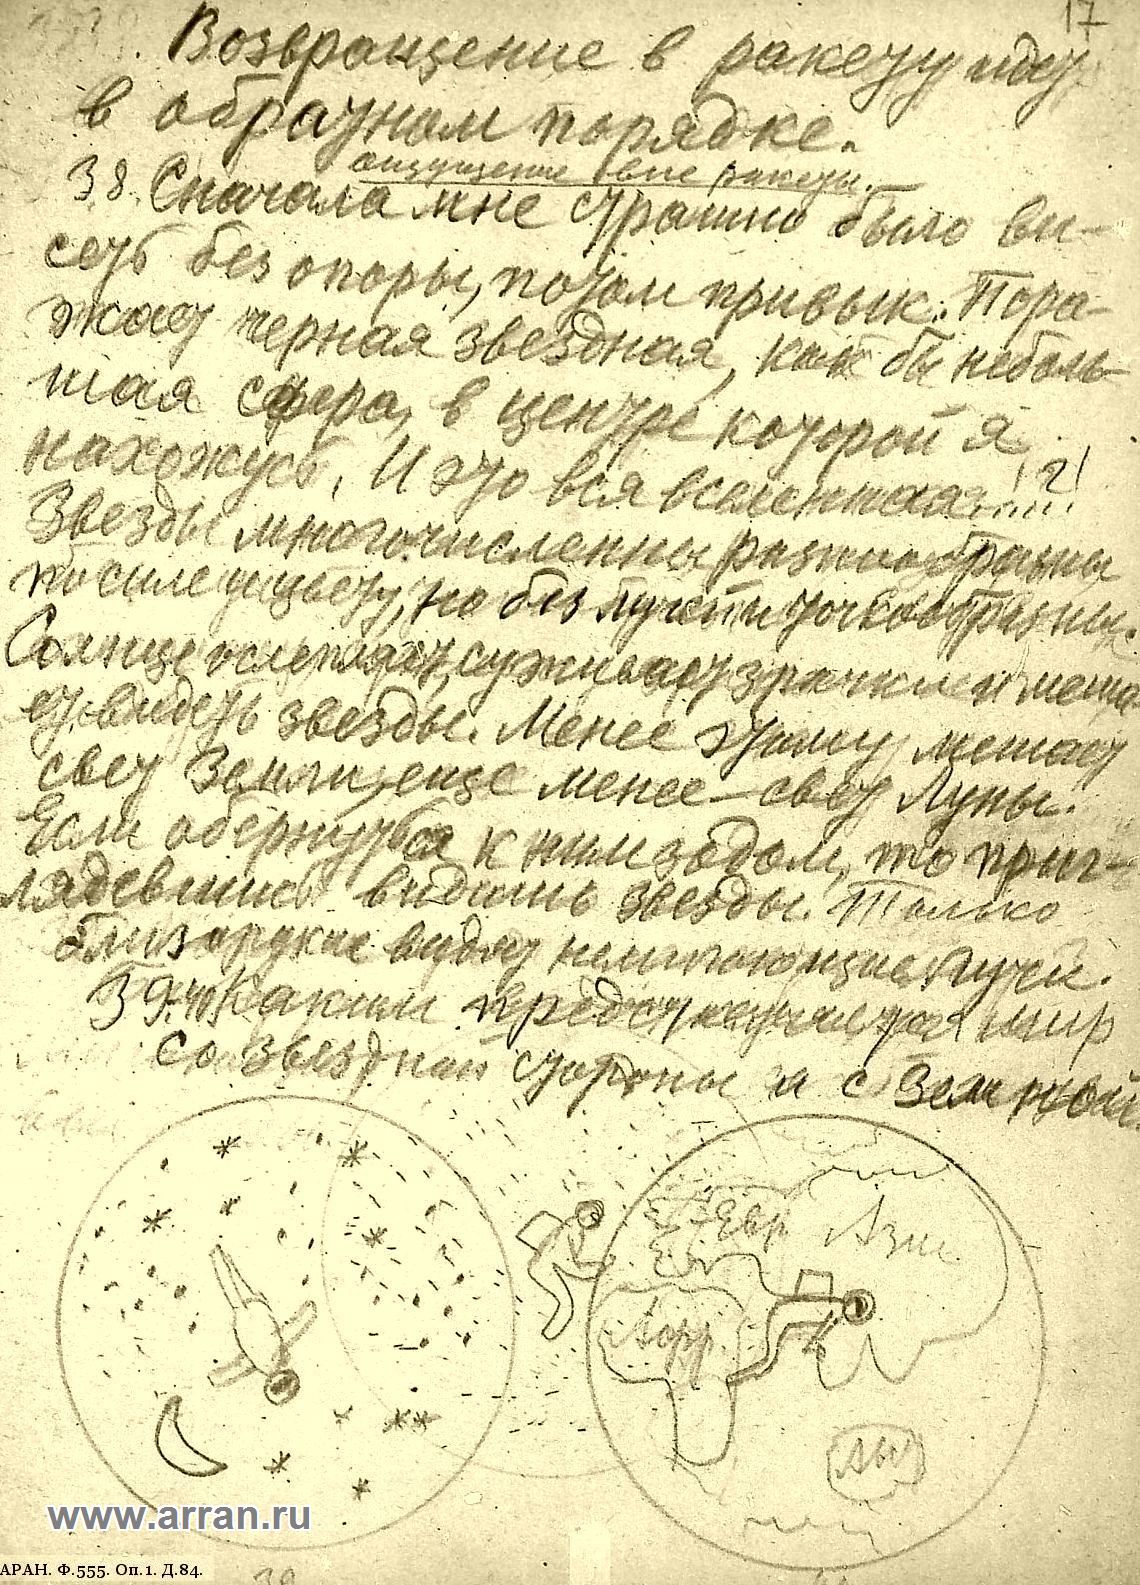 17
Возвращение в ракету идет
в обратном порядке.
ощущение вне ракеты.
38. Сначала мне страшно было ви-
сеть без опоры, потом привык. Пора-
жает черная звездная, как бы неболь-
шая сфера, в центре которой я
нахожусь. И это вся вселенная....!?!
Звезды многочисленны разнообразны
по силе и цвету, но без лучей и точкообразны.
Солнце ослепляет, суживает зрачки и меша-
ет видеть звезды. Менее этому мешает
свет Земли, еще менее – свет Луны.
Если обернуться к ним задом, то приг-
лядевшись видишь звезды. Только
близорукие видят немигающие лучи.
39.40 Каким представляется мир
со звездной стороны и с Земной.
Евр
Азия
Афр
Ав
www.arran.ru
АРАН. Ф.555. Оп.1. Д.84.